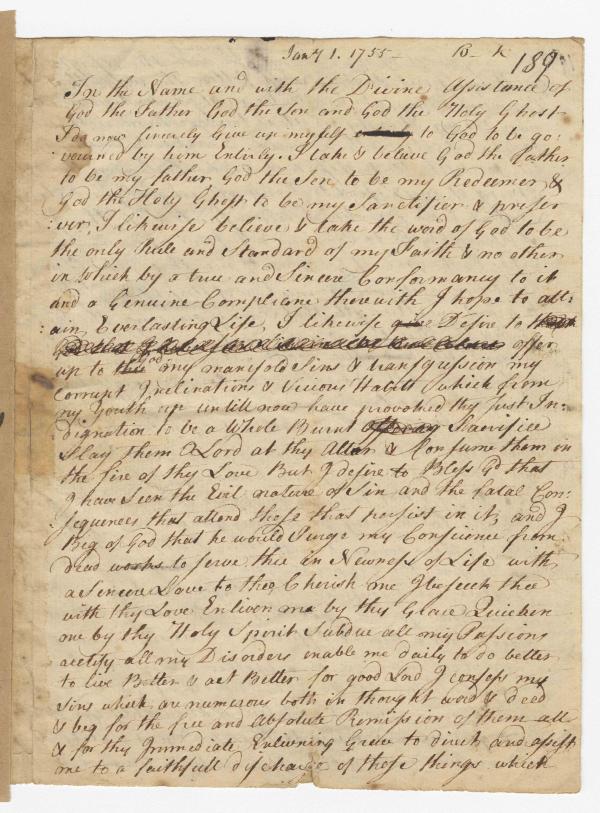 Jany 1. 1755 B - k 189
In the Name and with the Divine Assistance of
God the Father God the Son and God the Holy Ghost
I do now sincerely Give up myself to God to be go:
:verned by him Entirly. I take & believe God the father
to be my father God the Son to be my Redeemer &
God the Holy Ghost to be my Sanctifier & preser
:ver, I likewise believe & take the word of God to be
the only Rule and Standard of my Faith & no other
in which by a true and Sincere Conformancy to it
and a Genuine Compliane therewith I hope to att:
:ain Everlasting Life, I likewise give Desire to
offer
up to thee God my manifold Sins & transgression my
Corrupt Inclinations & Vicious Habitt which from
my Youth up untill now have provoked thy just In:
:dignation to be a Whole Burnt offering Sacrifice
Slay them O Lord at thy Alter & Consume them in
the fire of thy Love But I desire to Bless Gd that
I have Seen the Evil nature of Sin and the fatal Con:
:sequences that attend those that persist in it, and I
Beg of God that he would Purge my Conscience from
dead works to serve thee in Newness of Life with
a Sincere Love to thee Cherish me I beseech thee
with thy Love Enliven me by thy Grace Quicken
me by thy Holy Spirit Subdue all my Passions
rectify all my Disorders enable me daily to do better
to live Better & act Better for good Lord I confess my
Sins which are numerous both in thought word & deed
& beg for the free and Absolute Remission of them all
& for thy Immediate Enlivening Grace to direct and assist
me to a faithfull discharge of those things which